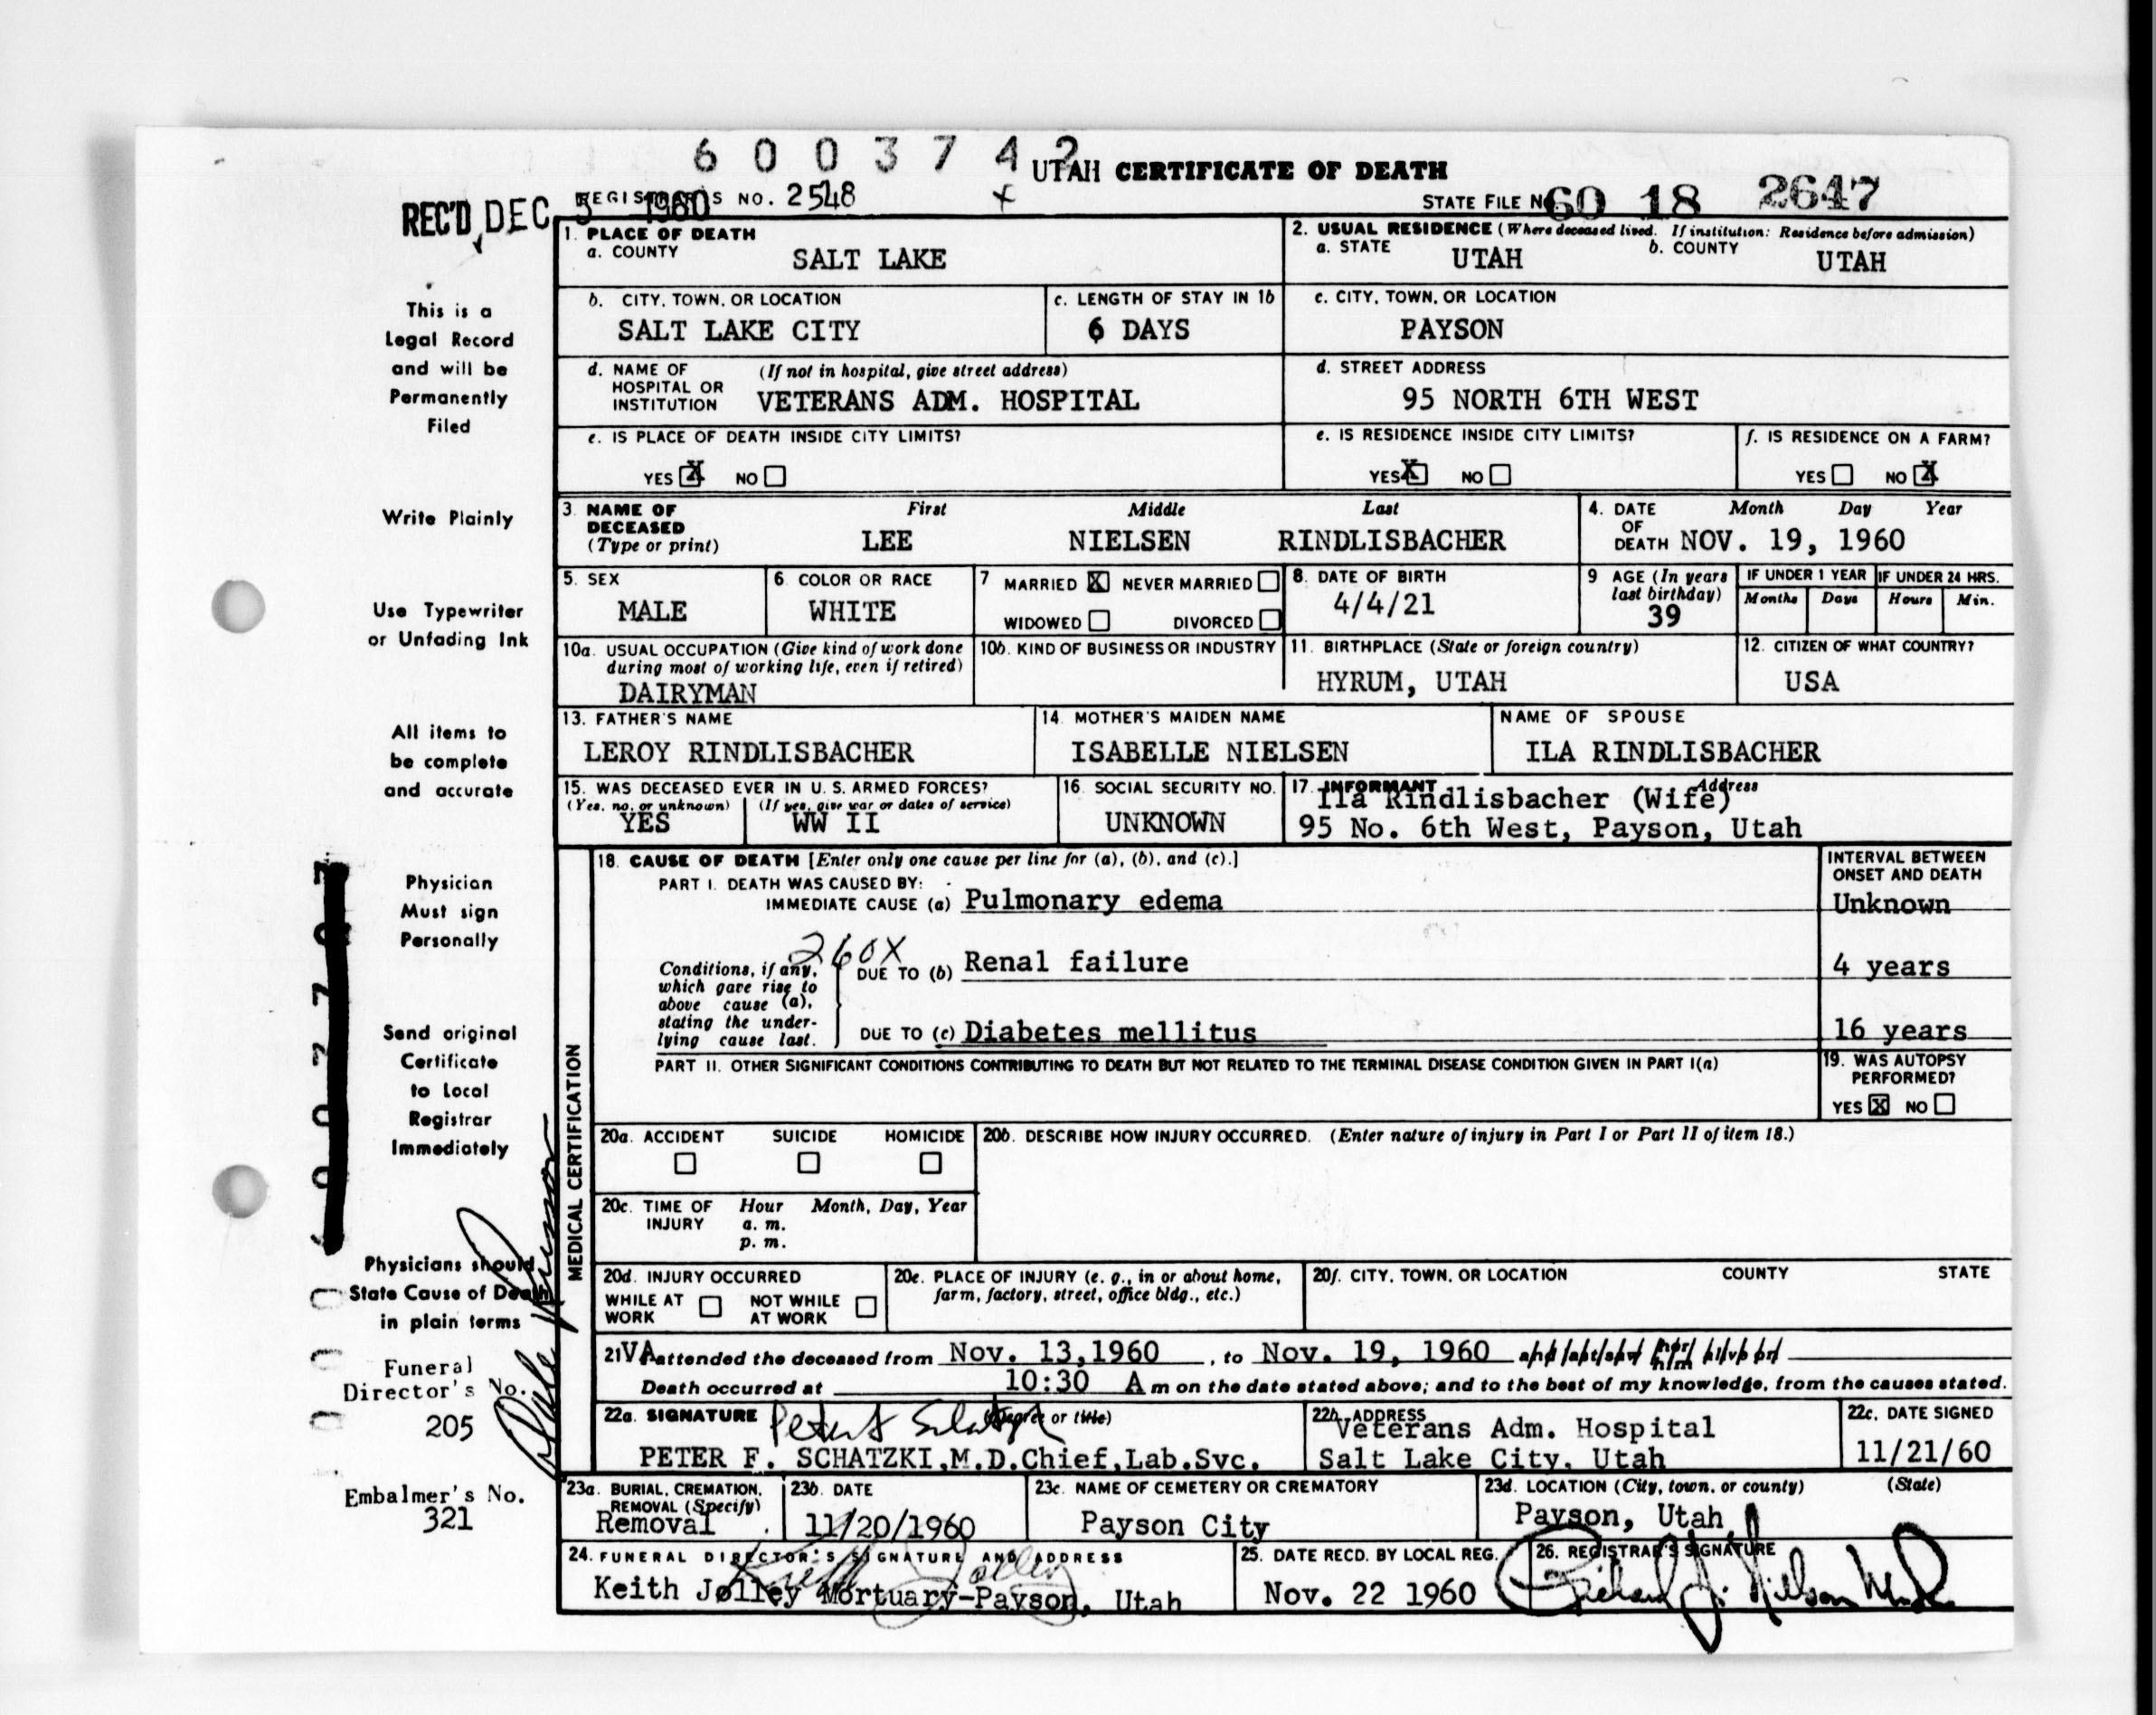 6 0 0 3 7 4 2
UTAH CERTIFICATE OF DEATH
REC'D DEC 5 1960
REGISTRAR'S NO. 2548
STATE FILE NO. 60 18 2647
1. PLACE OF DEATH
a. COUNTY SALT LAKE
2. USUAL RESIDENCE (Where deceased lived. If institution: Residence before admission)
a. STATE UTAH b. COUNTY UTAH
b. CITY, TOWN, OR LOCATION SALT LAKE CITY
c. LENGTH OF STAY IN 1b 6 DAYS
c. CITY, TOWN, OR LOCATION PAYSON
d. NAME OF HOSPITAL OR INSTITUTION (If not in hospital, give street address) VETERANS ADM. HOSPITAL
d. STREET ADDRESS 95 NORTH 6TH WEST
e. IS PLACE OF DEATH INSIDE CITY LIMITS?
YES X NO
e. IS RESIDENCE INSIDE CITY LIMITS?
YES X NO
f. IS RESIDENCE ON A FARM?
YES NO X
3. NAME OF DECEASED (Type or print)
First Middle Last
LEE NIELSEN RINDLISBACHER
4. DATE OF DEATH Month Day Year
NOV. 19, 1960
5. SEX MALE
6. COLOR OR RACE WHITE
7 MARRIED X NEVER MARRIED
WIDOWED DIVORCED
8. DATE OF BIRTH 4/4/21
9 AGE (In years last birthday) 39
IF UNDER 1 YEAR Months Days
IF UNDER 24 HRS. Hours Min.
10a. USUAL OCCUPATION (Give kind of work done during most of working life, even if retired)
DAIRYMAN
10b. KIND OF BUSINESS OR INDUSTRY
11. BIRTHPLACE (State or foreign country)
HYRUM, UTAH
12. CITIZEN OF WHAT COUNTRY?
USA
13. FATHER'S NAME
LEROY RINDLISBACHER
14. MOTHER'S MAIDEN NAME
ISABELLE NIELSEN
NAME OF SPOUSE
ILA RINDLISBACHER
15. WAS DECEASED EVER IN U. S. ARMED FORCES?
(Yes, no, or unknown) (If yes, give war or dates of service)
YES WW II
16. SOCIAL SECURITY NO.
UNKNOWN
17. INFORMANT Address
Ila Rindlisbacher (Wife)
95 No. 6th West, Payson, Utah
MEDICAL CERTIFICATION
18. CAUSE OF DEATH [Enter only one cause per line for (a), (b), and (c).]
INTERVAL BETWEEN ONSET AND DEATH
PART I. DEATH WAS CAUSED BY:
IMMEDIATE CAUSE (a) Pulmonary edema Unknown
260X
Conditions, if any, which gave rise to above cause (a), stating the underlying cause last.
DUE TO (b) Renal failure 4 years
DUE TO (c) Diabetes mellitus 16 years
PART II. OTHER SIGNIFICANT CONDITIONS CONTRIBUTING TO DEATH BUT NOT RELATED TO THE TERMINAL DISEASE CONDITION GIVEN IN PART I(a)
19. WAS AUTOPSY PERFORMED?
YES X NO
20a. ACCIDENT SUICIDE HOMICIDE
20b. DESCRIBE HOW INJURY OCCURRED. (Enter nature of injury in Part I or Part II of item 18.)
20c. TIME OF INJURY Hour Month, Day, Year
a. m.
p. m.
20d. INJURY OCCURRED
WHILE AT WORK NOT WHILE AT WORK
20e. PLACE OF INJURY (e. g., in or about home, farm, factory, street, office bldg., etc.)
20f. CITY, TOWN, OR LOCATION COUNTY STATE
21 VA attended the deceased from Nov. 13,1960, to Nov. 19, 1960 and last saw her him alive on
Death occurred at 10:30 A m on the date stated above; and to the best of my knowledge, from the causes stated.
22a. SIGNATURE (Degree or title)
PETER F. SCHATZKI,M.D.Chief,Lab.Svc.
22b. ADDRESS
Veterans Adm. Hospital
Salt Lake City, Utah
22c. DATE SIGNED
11/21/60
23a. BURIAL, CREMATION, REMOVAL (Specify)
Removal
23b. DATE
11/20/1960
23c. NAME OF CEMETERY OR CREMATORY
Payson City
23d. LOCATION (City, town, or county) (State)
Payson, Utah
24. FUNERAL DIRECTOR'S SIGNATURE AND ADDRESS
Keith Jolley
Keith Jolley Mortuary-Payson, Utah
25. DATE RECD. BY LOCAL REG.
Nov. 22 1960
26. REGISTRAR'S SIGNATURE
This is a
Legal Record
and will be
Permanently
Filed
Write Plainly
Use Typewriter
or Unfading Ink
All items to
be complete
and accurate
Physician
Must sign
Personally
Send original
Certificate
to Local
Registrar
Immediately
Physicians should
State Cause of Death
in plain terms
Funeral
Director's No.
205
Embalmer's No.
321